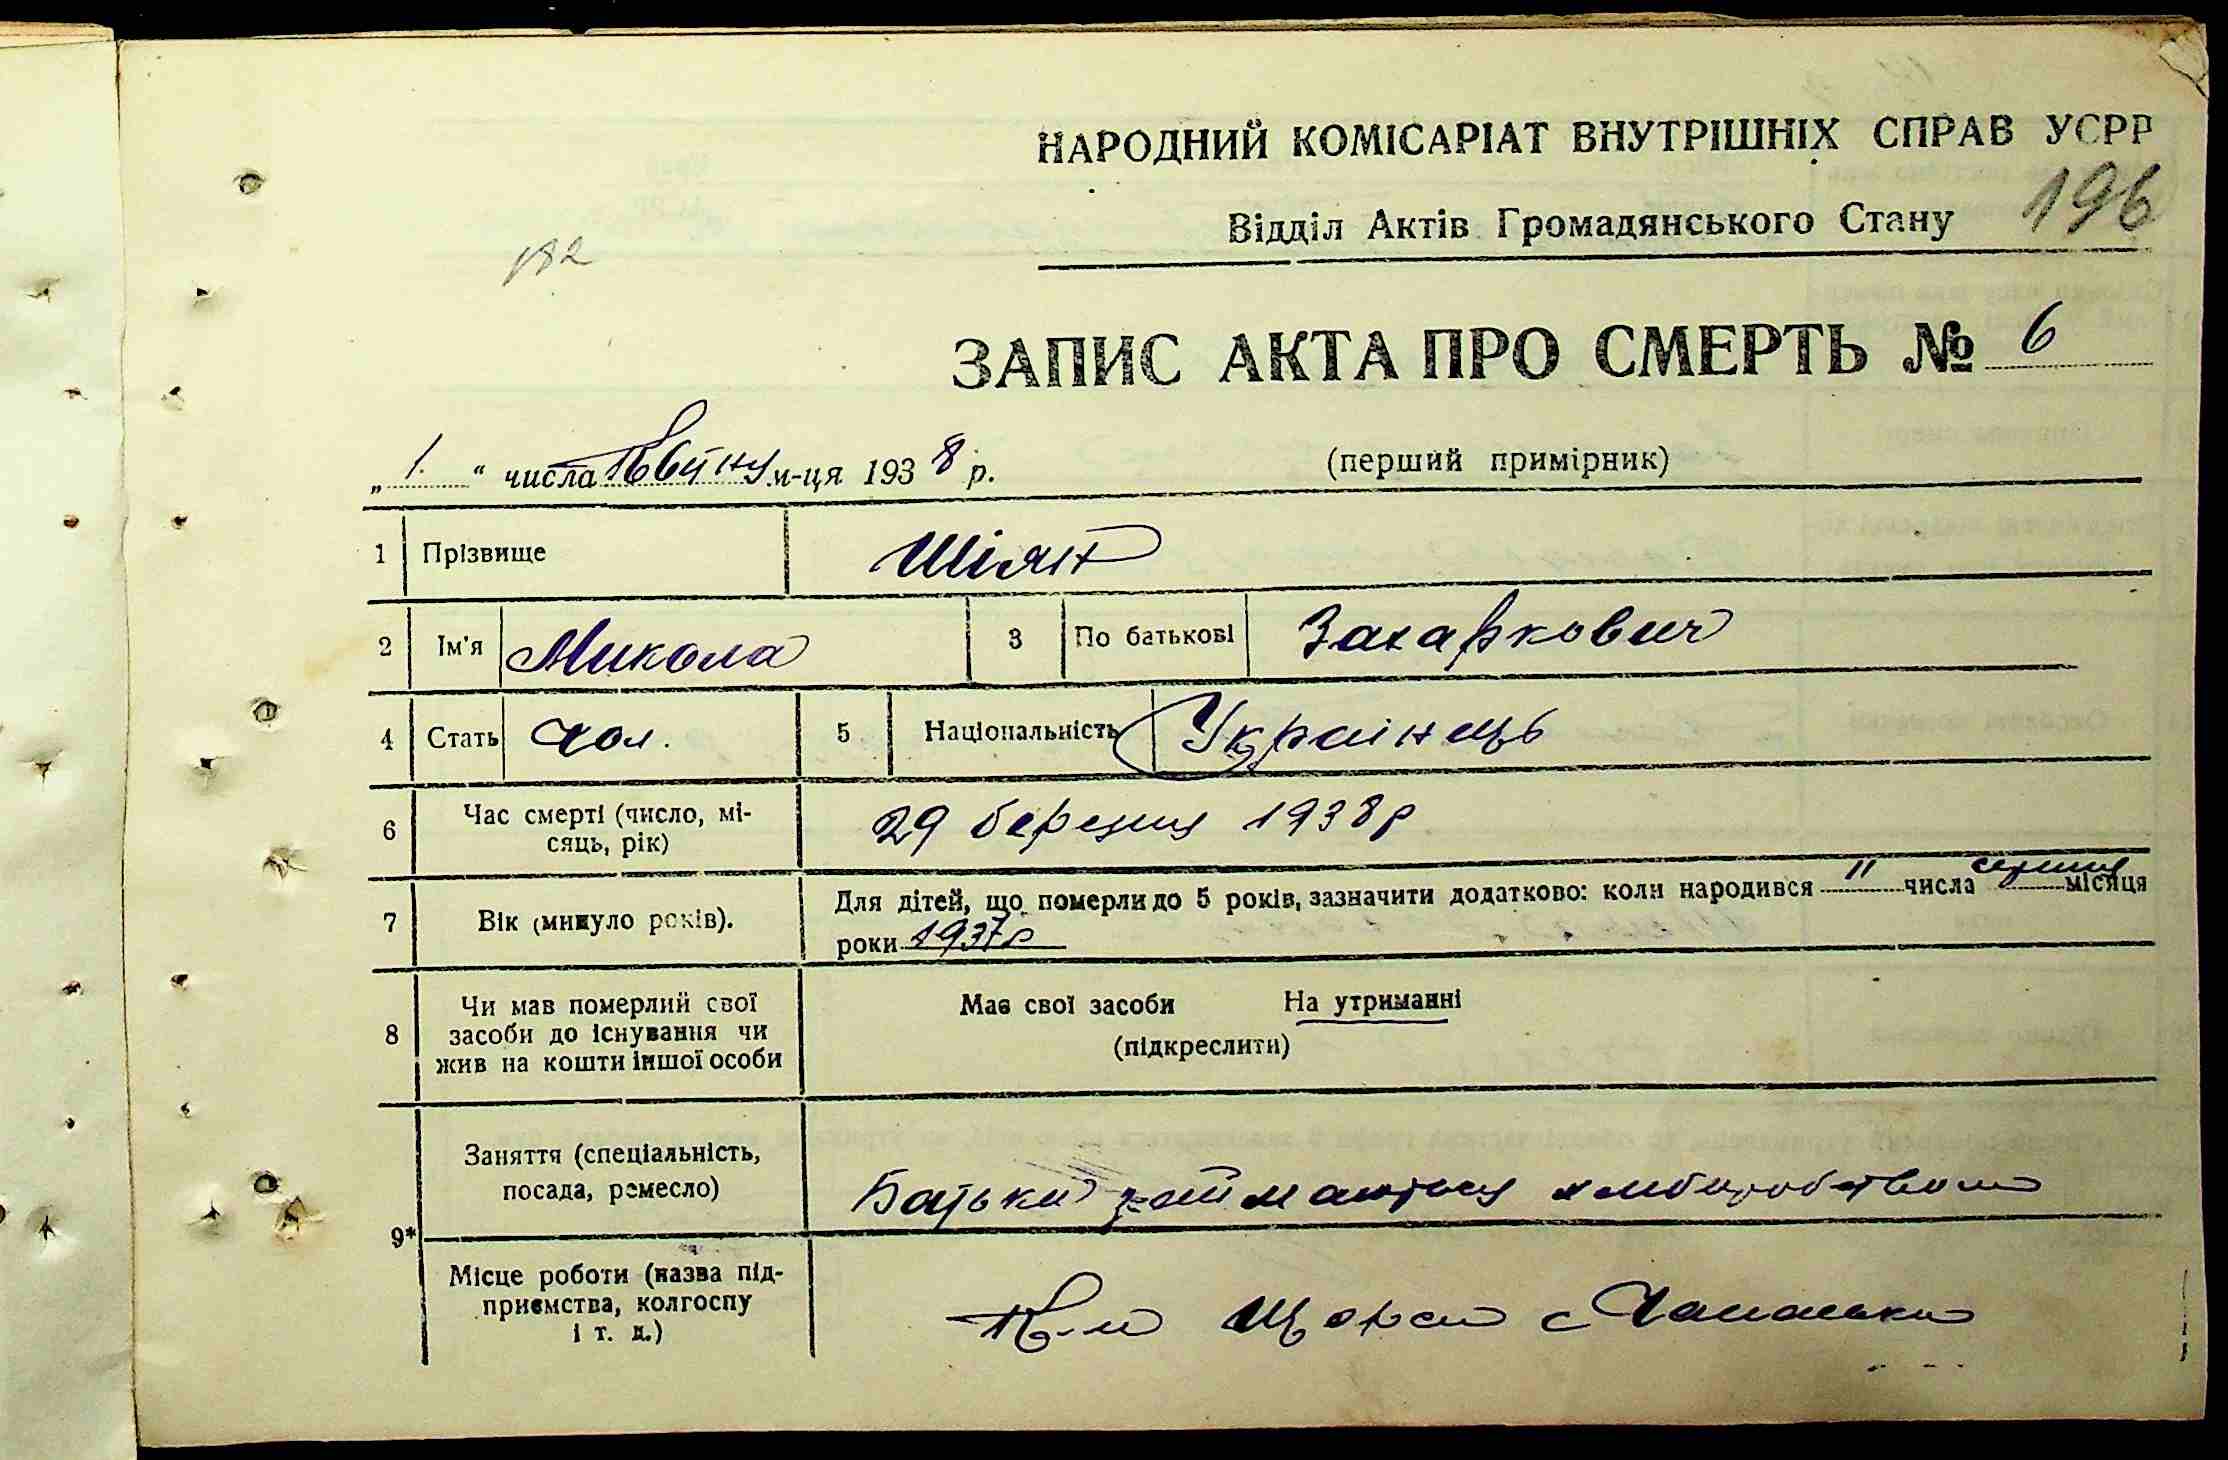 НАРОДНИЙ КОМІСАРІАТ ВНУТРІШНІХ СПРАВ УСРР
196
Відділ Актів Громадянського Стану
182
ЗАПИС АКТА ПРО СМЕРТЬ № 6
„ 1. “ числа Квітня м-ця 193 8 р.
(перший примірник)
1 Прізвище Шіян
2 Ім'я Микола 3 По батькові Захаркович
4 Стать Чол. 5 Національність Українець
6 Час смерті (число, мі-
сяць, рік)
29 березня 1938 р
7 Вік (минуло років).
Для дітей, що померли до 5 років, зазначити додатково: коли народився 11 числа серпня місяця
роки 1937 р
8 Чи мав померлий свої
засоби до існування чи
жив на кошти іншої особи
Має свої засоби На утриманні
(підкреслити)
9*
Заняття (спеціальність,
посада, ремесло)
Батьки займаються хліборобством
Місце роботи (назва під-
приємства, колгоспу
і т. д.)
Щорса с